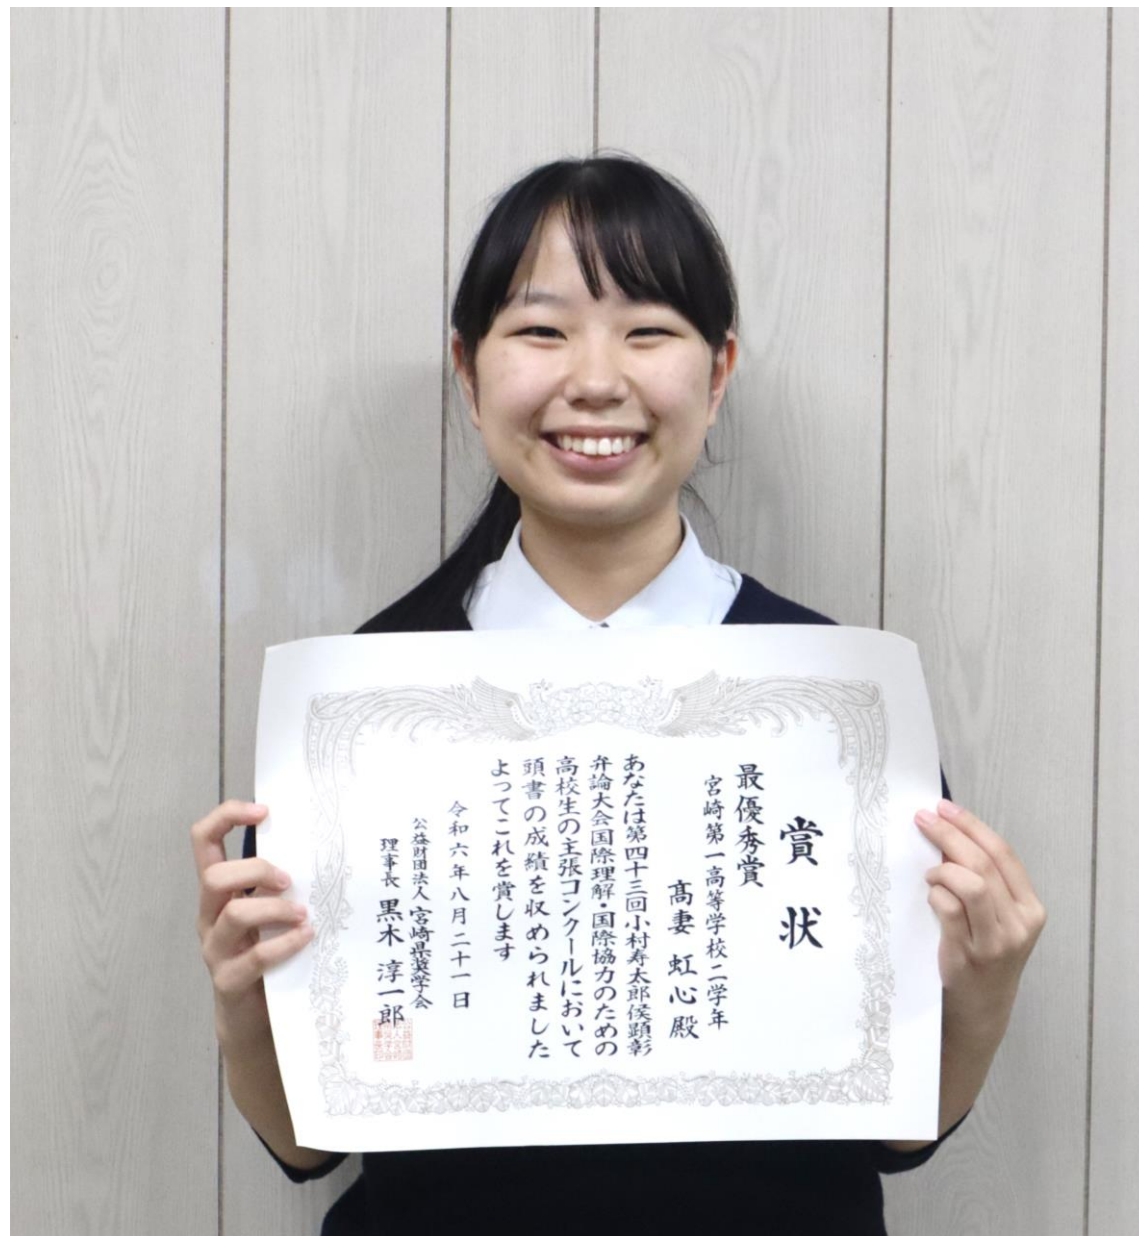 賞状
最優秀賞
宮崎第一高等学校二学年
髙妻虹心殿
あなたは第四十三回小村寿太郎侯顕彰
弁論大会国際理解・国際協力のための
高校生の主張コンクールにおいて
頭書の成績を収められました
よってこれを賞します
令和六年八月二十一日
公益財団法人宮崎県奨学会
理事長黒木淳一郎